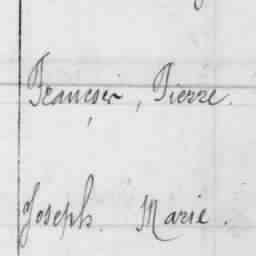 François, Pierre.
Joseph. Marie.